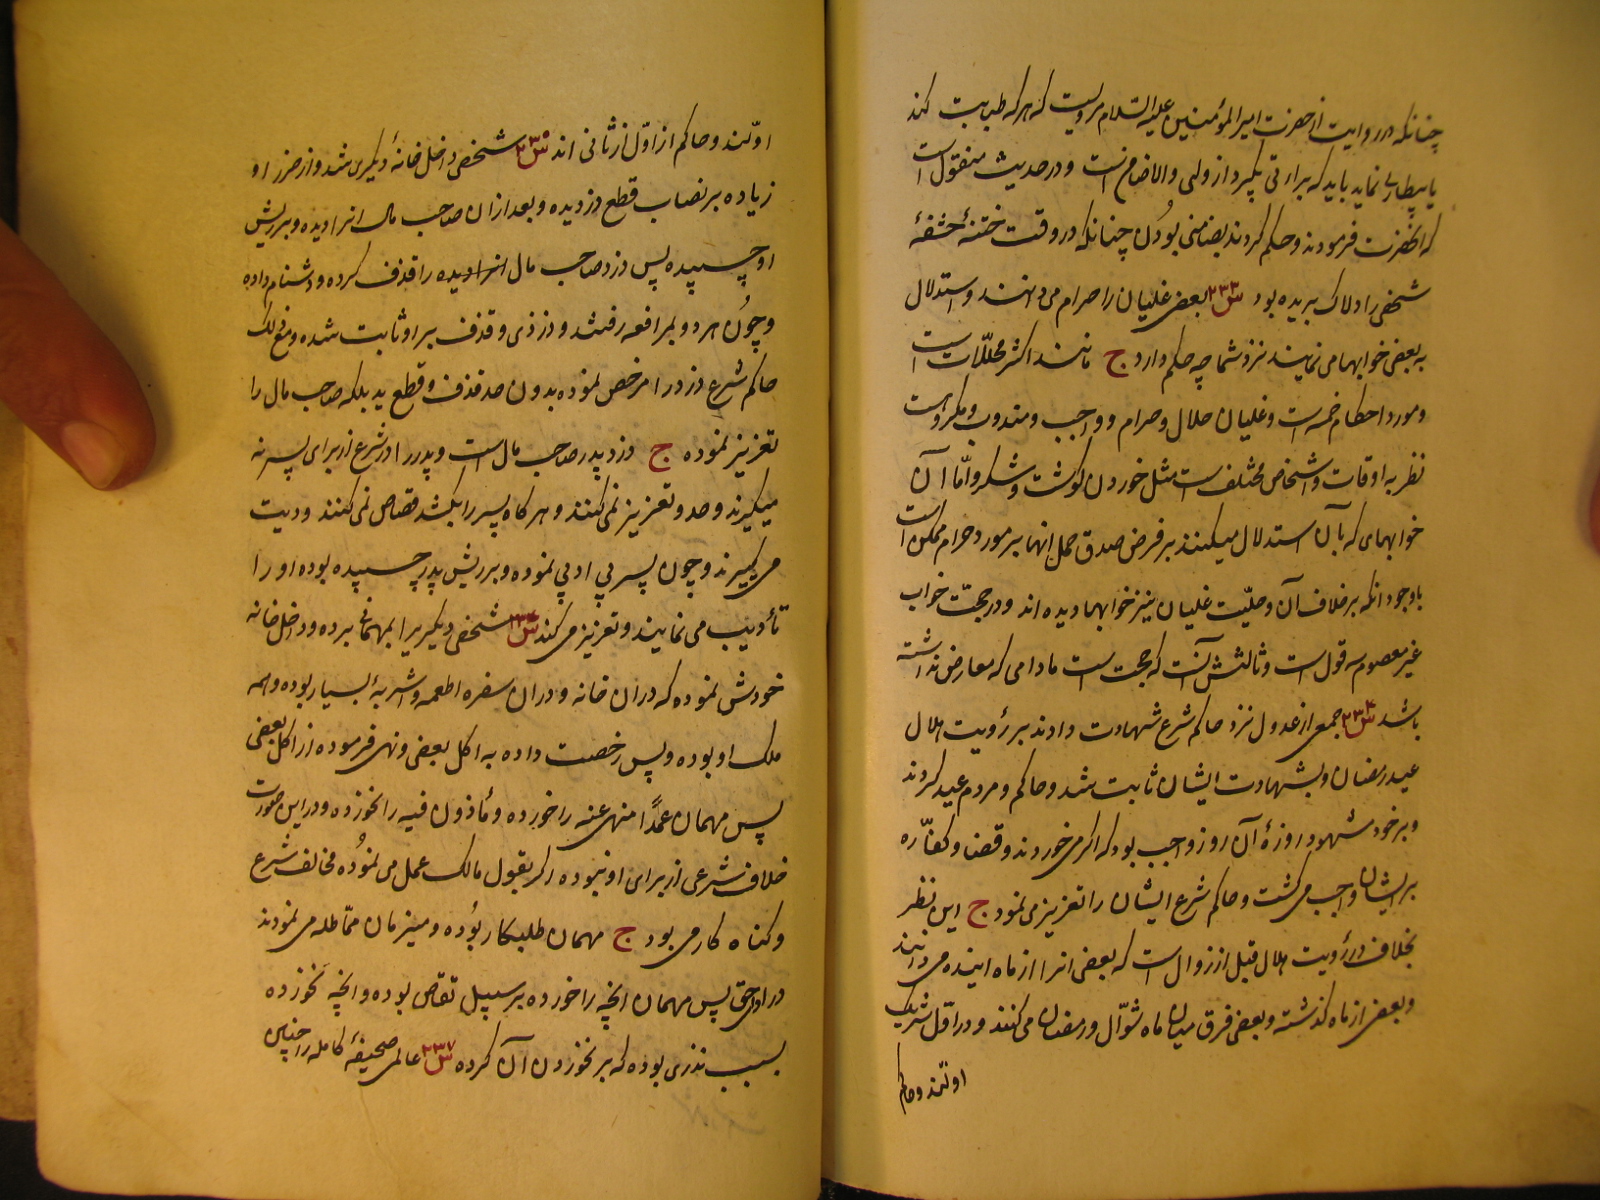 چنانکه در روایت از حضرت امیر المؤمنین علیه السلام مرویست که هر که طبابت کند
یا بیطاری نماید باید که براءتی بگیرد از ولی والا ضامن است و در حدیث منقول است
که آنحضرت فرمودند و حکم کردند بضامنی بودن چنانکه در وقت ختنهٔ حشفهٔ
شخصی را دلاک بریده بود س۲۳۳ بعضی غلیان را حرام می دانند و استدلال
به بعضی خوابها می نمایند نزد شما چه حکم دارد ج مانند اکثر محلّلات است
و مورد احکام خمسه است و غلیان حلال و حرام و واجب و مندوب و مکروه است
نظر به اوقات و اشخاص مختلف است مثل خوردن گوشت و شکر و امّا آن
خوابهای که بآن استدلال میکنند بر فرض صدق حمل انها بر مورد حرام ممکن است
باوجود انکه بر خلاف آن و حلّیت غلیان نیز خوابها دیده اند و در حجّت خواب
غیر معصوم سه قول است و ثالثش آنست که حجت است مادامی که معارض نداشته
باشد س۲۳۴ جمعی از عدول نزد حاکم شرع شهادت دادند بر رؤیت هلال
عید رمضان و بشهادت ایشان ثابت شد و حاکم و مردم عید کردند
و بر خود شهود روزهٔ آن روز واجب بود که اگر می خوردند و قضا و کفّاره
بر ایشان واجب می گشت و حاکم شرع ایشان را تعزیز می نمود ج این نظر
بخلاف در رؤیت هلال قبل از زوال است که بعضی انرا از ماه اینده می دانند
و بعضی از ماه گذشته و بعضی فرق میان ماه شوّال و رمضان می کنند و در اقل شریک
اولند و حاکم
اولّند و حاکم از اوّل از ثانی اند س۲۳۵ شخصی داخل خانهٔ دیگری شد و از حرز او
زیاده بر نصاب قطع دزدیده و بعد ازان صاحب مال انرا دیده و بر ریش
او چسپیده پس دزد صاحب مال انرا دیده را قذف کرده و دشنام داده
و چون هر دو بمرافعه رفتند و دزدی و قذف بر او ثابت شده و مع ذلک
حاکم شرع دزد را مرخص نموده بدون حد قذف و قطع ید بلکه صاحب مال را
تعزیز نموده ج دزد پدر صاحب مال است و پدر را در شرع از برای پسر نه
میگیرند و حد و تعزیز نمی کنند و هر گاه پسر را بکشد قصاص نمی کنند و دیت
می گیرند و چون پسر بی ادبی نموده و بر ریش پدر چسپیده بوده او را
تأدیب می نمایند و تعزیز می کند س۲۳۶ شخصی دیگریرا بمهمانی برده و داخل خانه
خودش نموده که دران خانه و دران سفره اطعمه و اشربهٔ بسیار بوده و همه
ملک او بوده و پس رخصت داده به اکل بعضی و نهی فرموده از اکل بعضی
پس مهمان عمدًا منهی عنه را خورده و مأذون فیه را نخورده و در این صورت
خلاف شرعی از برای او نبوده و اگر بقول مالک عمل می نموده مخالف شرع
و گناه کار می بود ج مهمان طلبکار بوده و میزبان مماطله می نمودند
در ادای حق پس مهمان انچه را خورده بر سبیل تقاص بوده و انچه نخورده
بسبب نذری بوده که بر نخوردن آن کرده س۲۳۷ عالمی صحیفهٔ کامله را چنین